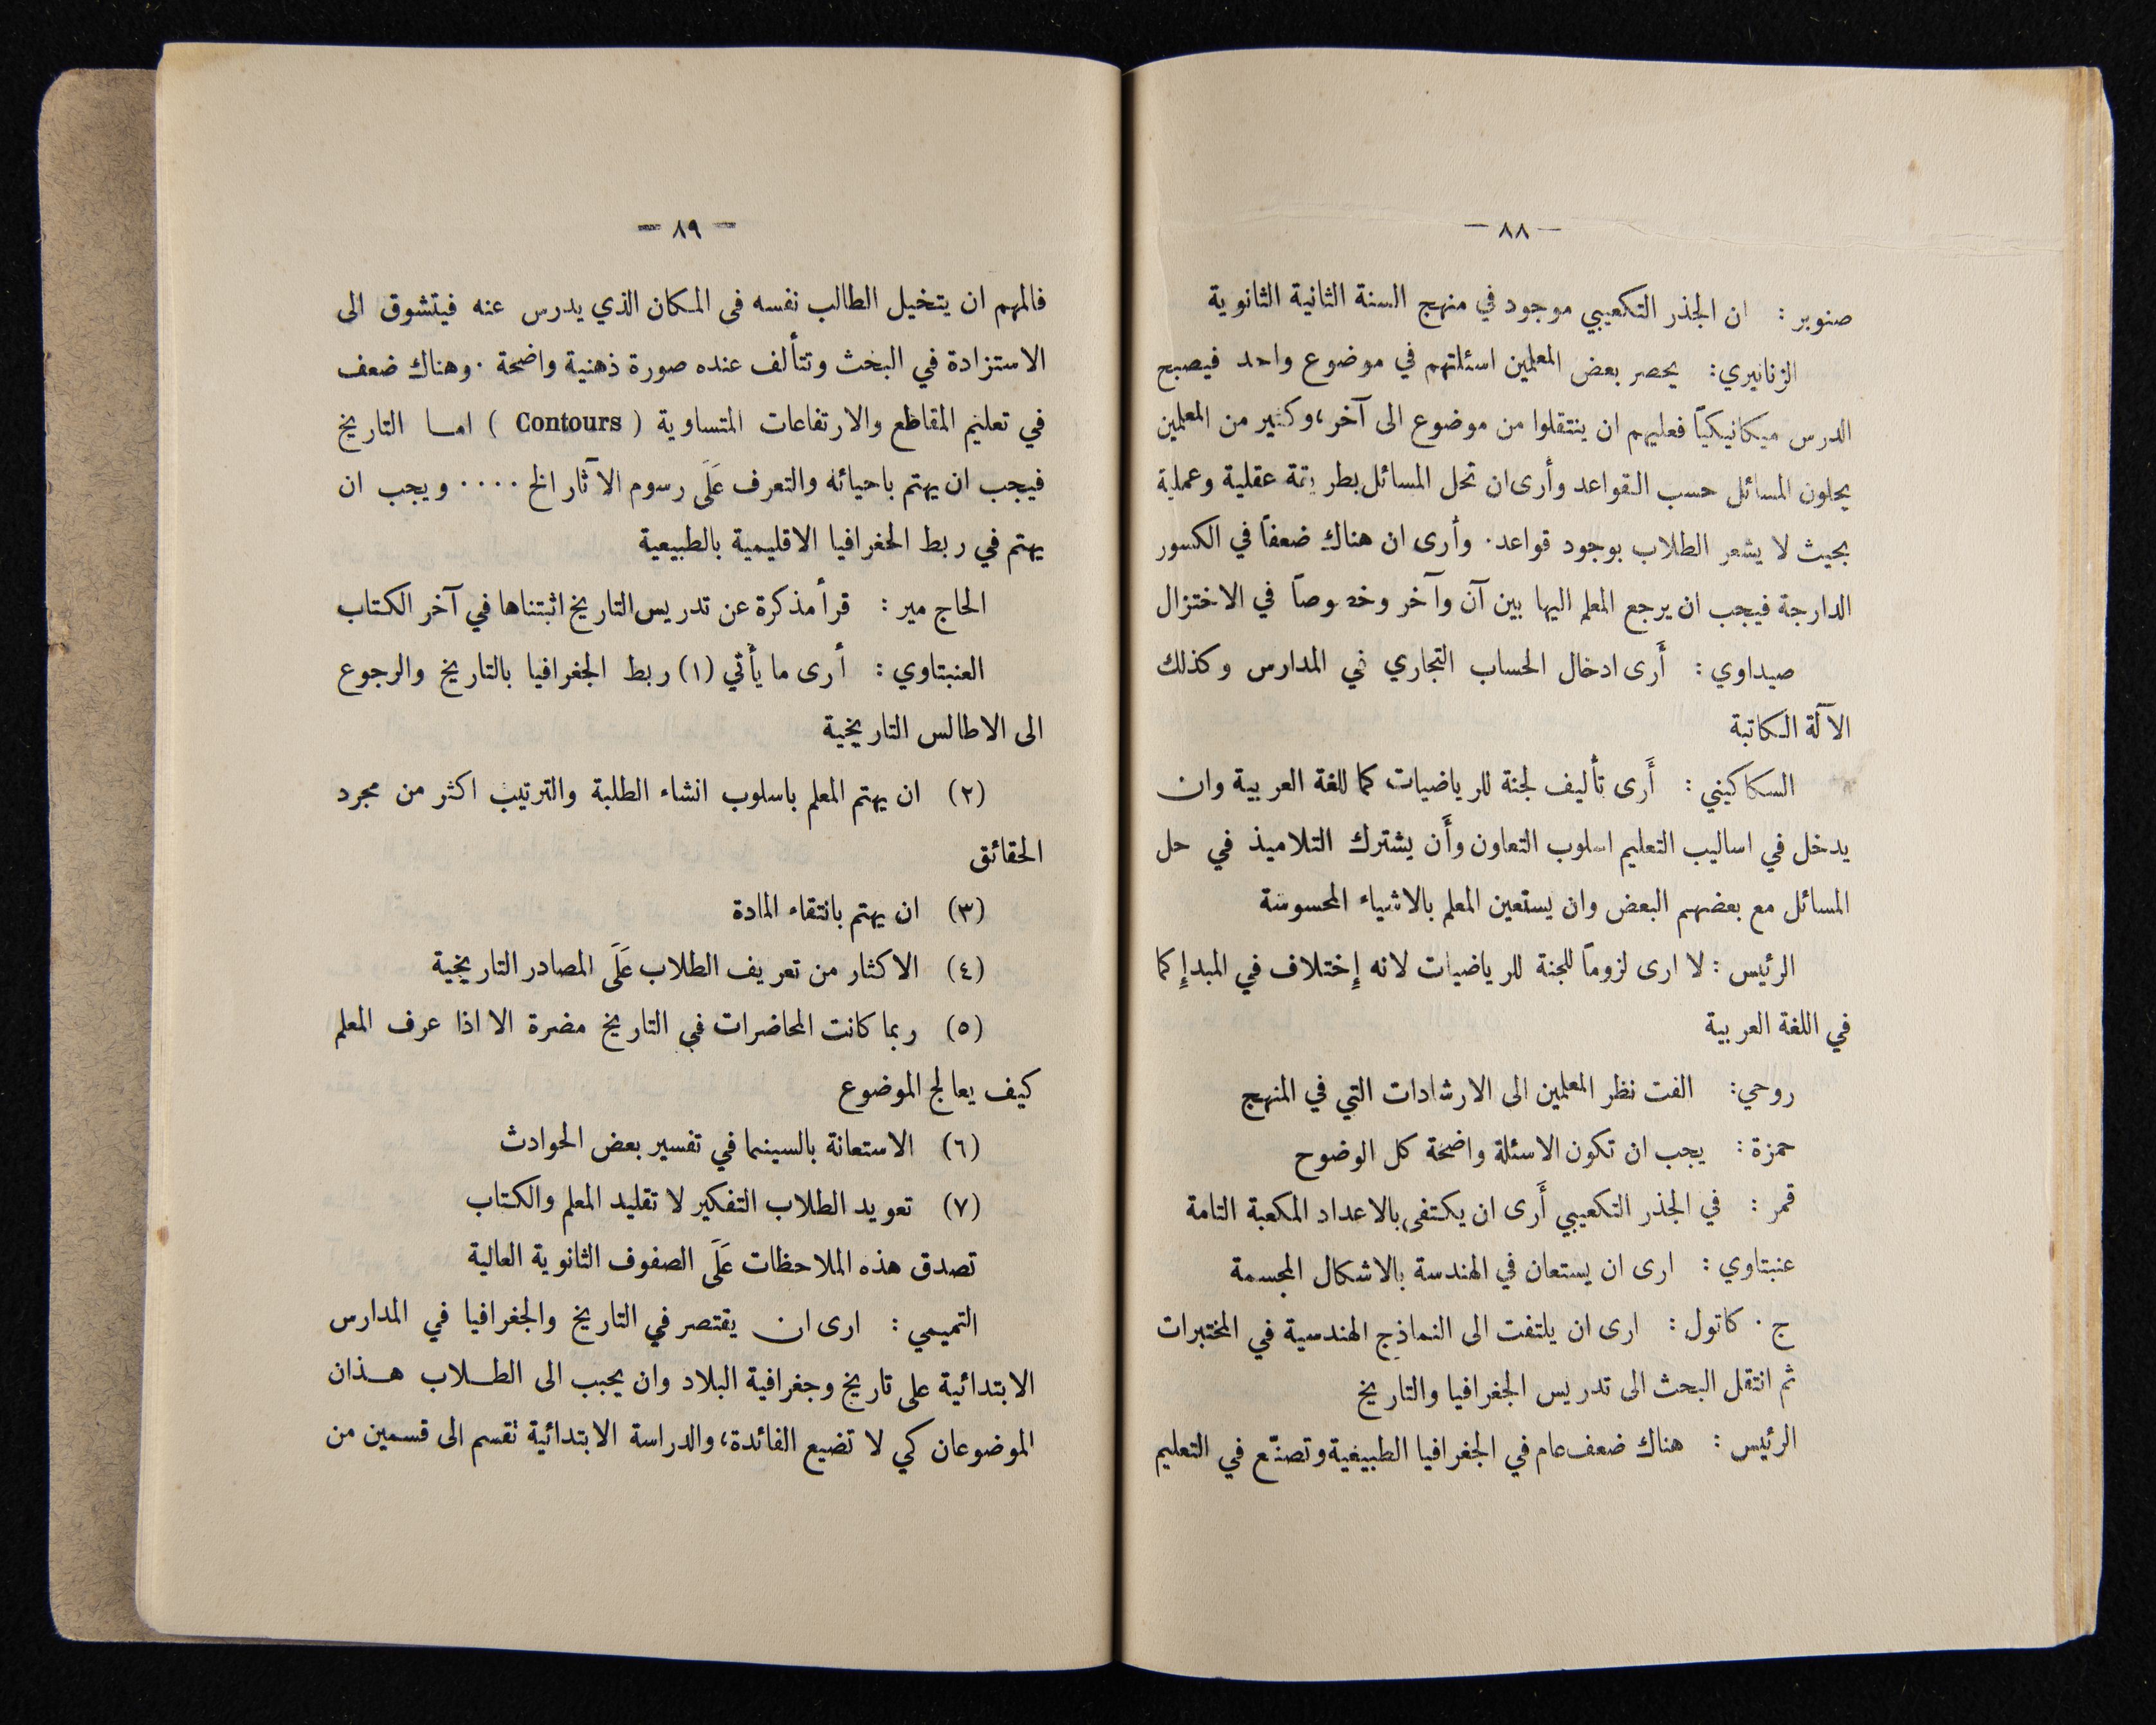 — ٨٨ —
صنوبر : ان الجذر التكعيبي موجود في منهج السنة الثانية الثانوية
الزنانيري: يحصر بعض المعلمين اسئلتهم في موضوع واحد فيصبح
الدرس ميكانيكيّا فعليهم ان ينتقلوا من موضوع الى آخر، وكثير من المعلمين
يحلون المسائل حسب القواعد وأرى ان تحل المسائل بطريقة عقلية وعملية
بحيث لا يشعر الطلاب بوجود قواعد. وأرى ان هناك ضعفاً في الكسور
الدارجة فيجب ان يرجع المعلم اليها بين آن وآخر وخصوصاً في الاختزال
صيداوي : أَرى ادخال الحساب التجاري في المدارس وكذلك
الآلة الكاتبة
السكاكيني : أَرى تأليف لجنة للرياضيات كما للغة العربية وان
يدخل في اساليب التعليم اسلوب التعاون وأَن يشترك التلاميذ في حل
المسائل مع بعضهم البعض وان يستعين المعلم بالاشياء المحسوسة
الرئيس : لا ارى لزوماً للجنة للرياضيات لانه إختلاف في المبدإ كما
في اللغة العربية
روحي: الفت نظر المعلمين الى الارشادات التي في المنهج
حمزة : يجب ان تكون الاسئلة واضحة كل الوضوح
قمر : في الجذر التكعيبي أَرى ان يكتفى بالاعداد المكعبة التامة
عنبتاوي : ارى ان يستعان في الهندسة بالاشكال المجسمة
ج . كاتول : ارى ان يلتفت الى النماذج الهندسية في المختبرات
ثم انتقل البحث الى تدريس الجغرافيا والتاريخ
الرئيس : هناك ضعف عام في الجغرافيا الطبيعية وتصنّع في التعليم
— ٨٩ —
فالمهم ان يتخيل الطالب نفسه في المكان الذي يدرس عنه فيتشوق الى
الاستزادة في البحث وتتألف عنده صورة ذهنية واضحة . وهناك ضعف
في تعليم المقاطع والارتفاعات المتساوية ( Contours ) اما التاريخ
فيجب ان يهتم باحيائه والتعرف عَلَى رسوم الآثار الخ .... ويجب ان
يهتم في ربط الجغرافيا الاقليمية بالطبيعية
الحاج مير : قرأ مذكرة عن تدريس التاريخ اثبتناها في آخر الكتاب
العنبتاوي : أرى ما يأتي (١) ربط الجغرافيا بالتاريخ والرجوع
الى الاطالس التاريخية
(٢) ان يهتم المعلم باسلوب انشاء الطلبة والترتيب اكثر من مجرد
الحقائق
(٣) ان يهتم بانتقاء المادة
(٤) الاكثار من تعريف الطلاب عَلَى المصادر التاريخية
(٥) ربما كانت المحاضرات في التاريخ مضرة الا اذا عرف المعلم
كيف يعالج الموضوع
(٦) الاستعانة بالسينما في تفسير بعض الحوادث
(٧) تعويد الطلاب التفكير لا تقليد المعلم والكتاب
تصدق هذه الملاحظات عَلَى الصفوف الثانوية العالية
التميمي : ارى ان يقتصر في التاريخ والجغرافيا في المدارس
الابتدائية على تاريخ وجغرافية البلاد وان يحبب الى الطلاب هذان
الموضوعان كي لا تضيع الفائدة، والدراسة الابتدائية تقسم الى قسمين من